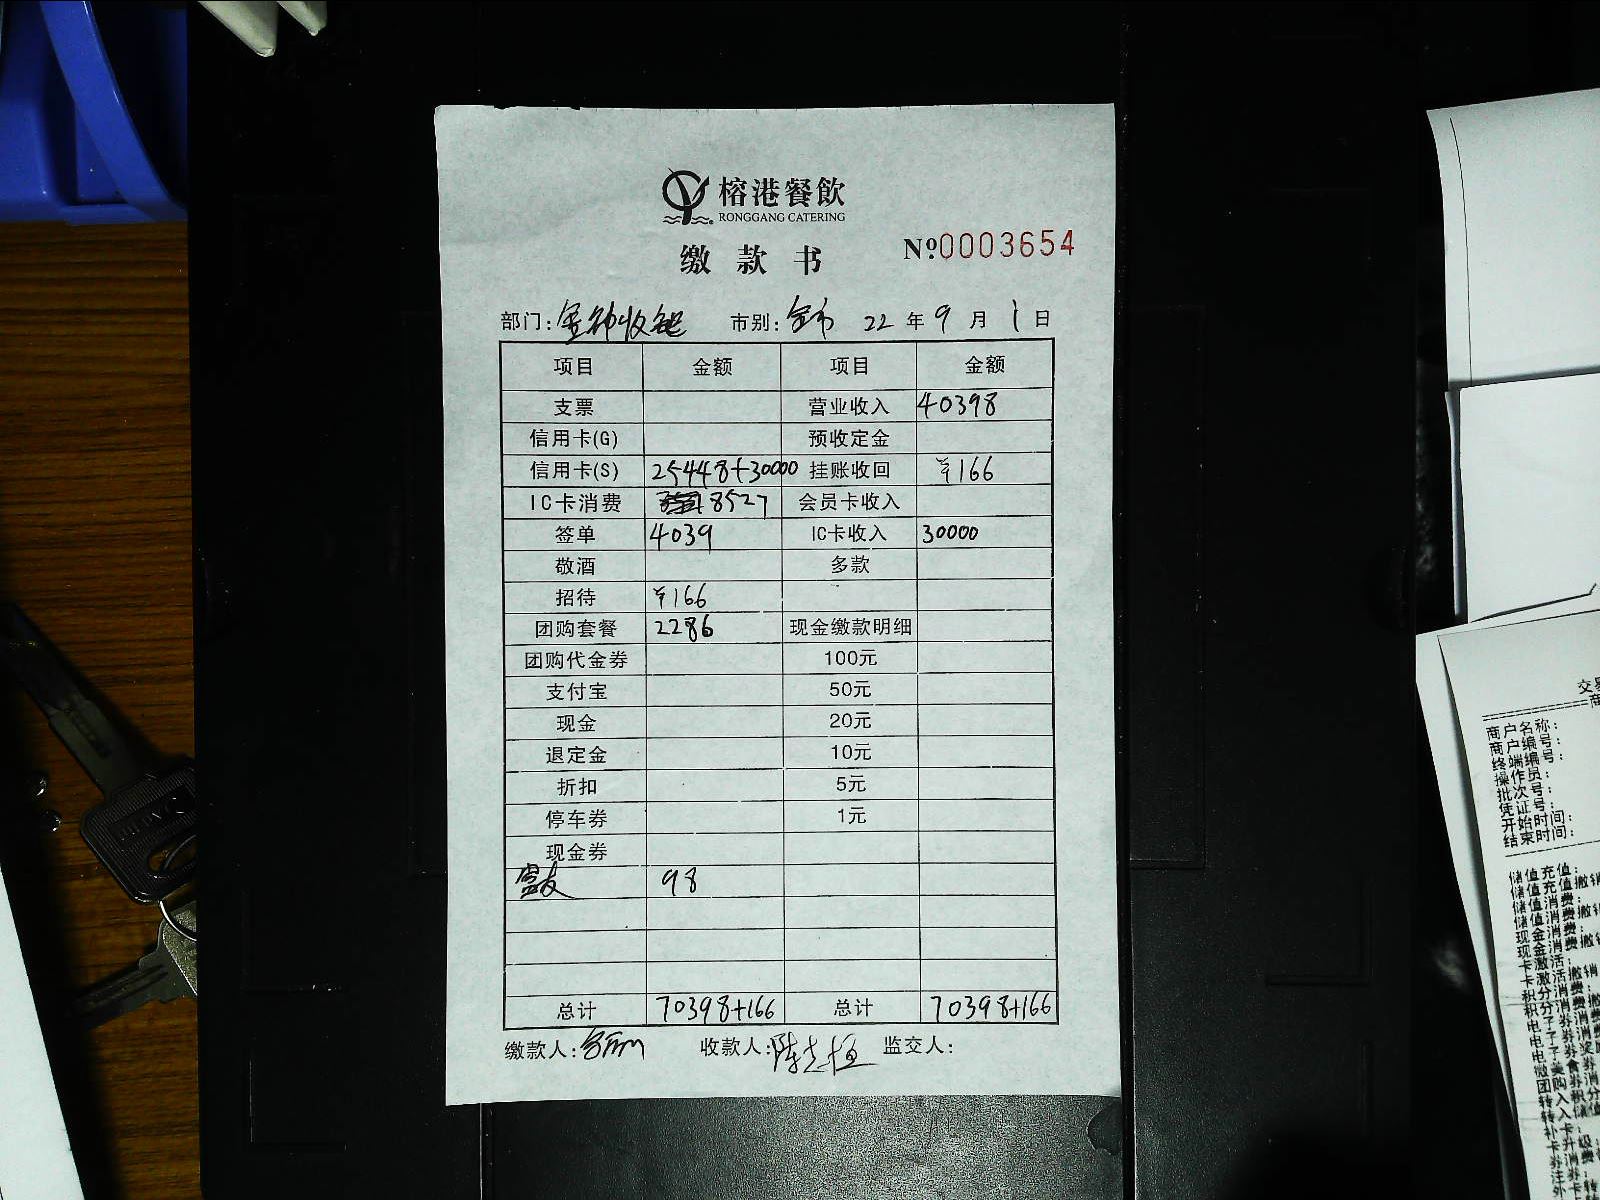 榕港餐飲
RONGGANG CATERING
缴款书 Nº0003654
部门: 市别: 22 年 9 月 1 日
项目 金额 项目 金额
支票 营业收入 40398
信用卡(G) 预收定金
信用卡(S) 25448+30000 挂账收回 ¥166
IC卡消费 8527 会员卡收入
签单 4039 IC卡收入 30000
敬酒 多款
招待 ¥166
团购套餐 2286 现金缴款明细
团购代金券 100元
支付宝 50元
现金 20元
退定金 10元
折扣 5元
停车券 1元
现金券
98
总计 70398+166 总计 70398+166
缴款人: 收款人: 监交人:
商户名称:
商户编号:
终端编号:
操作员:
批次号:
凭证号:
开始时间:
结束时间:
储值充值:
储值充值撤销
储值消费:
储值消费撤销
现金消费:
现金消费撤销
卡激活:
卡激活撤销